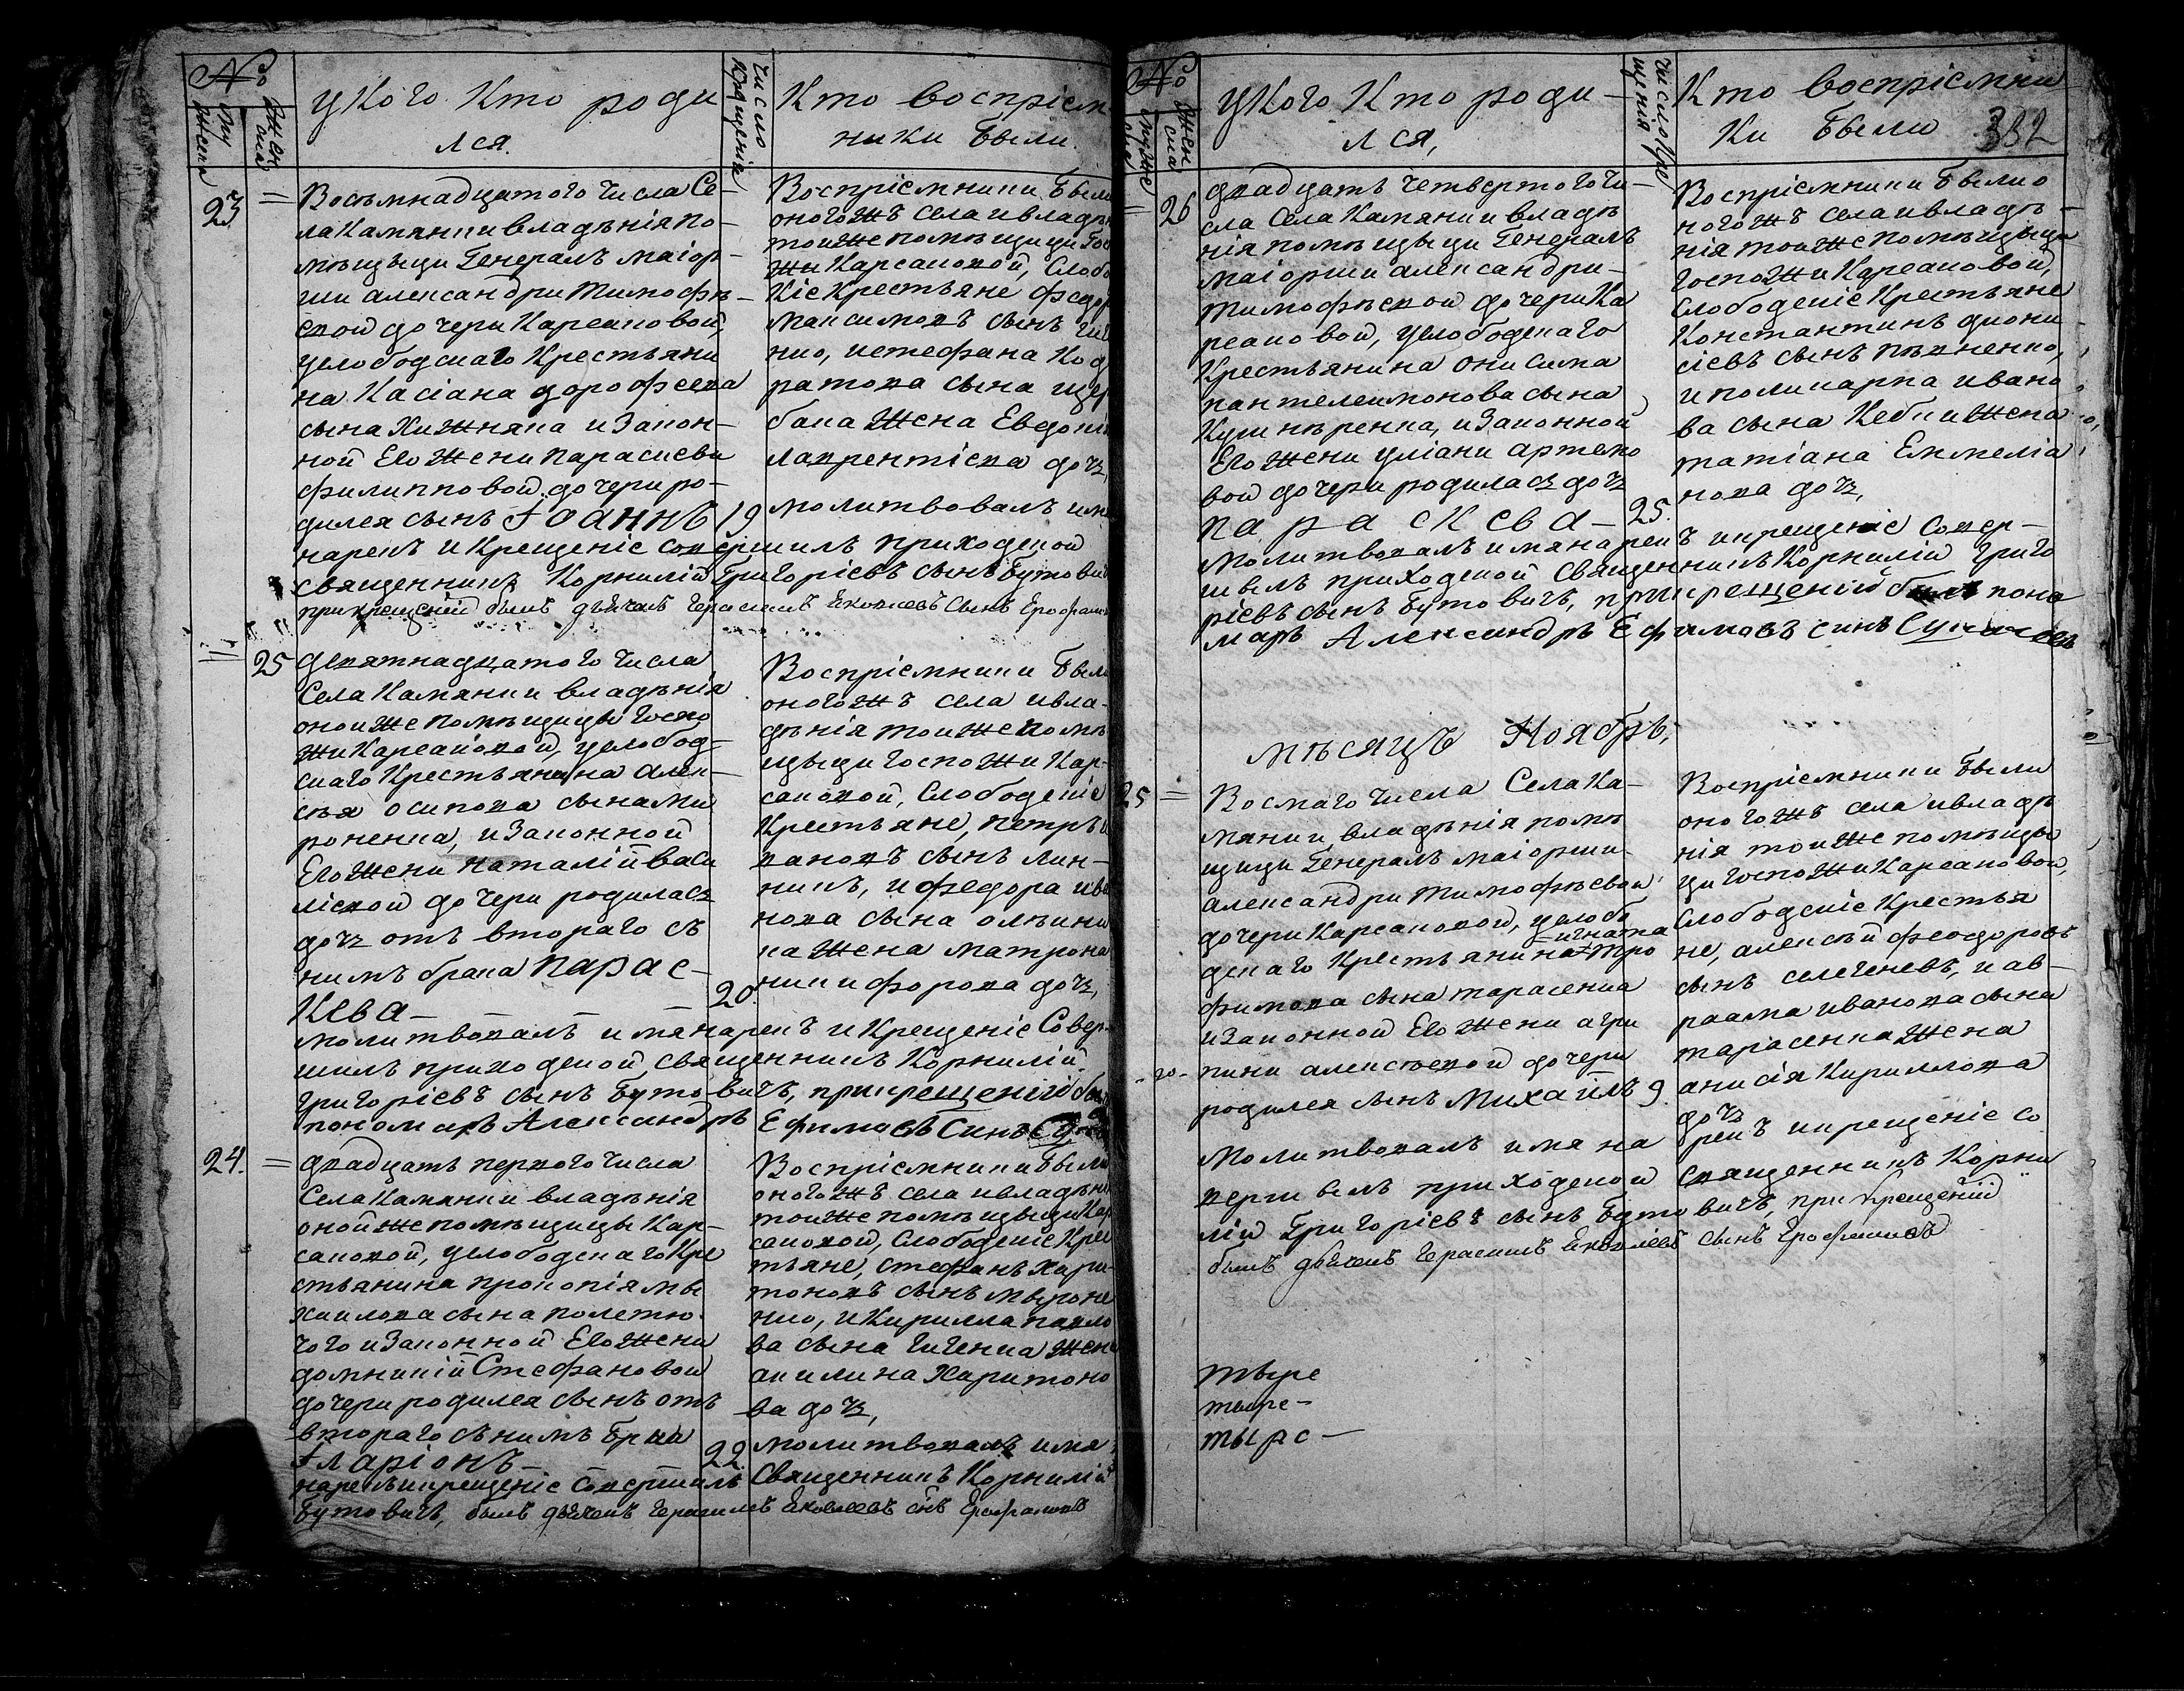 №
муже
ска
женска
у Кого Кто роди
лся.
число
крещенія
Кто воспріем-
ники были.
23
Восьмнадцатого числа Се-
ла Камянки владѣнія по-
мѣщыци Генералъ маіор-
ши александри Тимофѣ-
евой дочери Карсаковой,
услободскаго Крестьяни
на Касіана дорофеева
сына Хижняка и Закон-
ной Его Жени Параскеви
филипповой дочери ро-
дился сынъ Іоаннъ
19
Воспріемники были
оногожъ села и владѣ
тоижепомѣщици Гос
жи Карсаковой, Слобо
кіе Крестьяне Федор
Максимовъ сынъ
нко, и стефана Код
ратова сына щер
бака Жена Евдокі
лаврентіева дочь,
молитвовалъ имя
нарекъ и Крещеніе совершилъ приходской
священникъ Корнилій Григоріевъ сынъ Бутовичъ
при крещеніи былъ дьячекъ Герасимъ Яковлевъ сынъ Ерофа
25
девятнадцатого числа
Села Камянки владѣнія
оноижепомѣщици Госпо
жи Карсаковой, услобод-
скаго Крестьянина алек-
сѣя осипова сына ми
роненка, и Законной
Его Жени наталіи васи
ліевой дочери родилась
дочь отъ второго съ
нимъ брака Парас-
кева-
20.
Воспріемники были
оногожъ села и вла-
дѣнія тоижепомѣ
щыци госпожи Кар-
саковой, Слободскіе
Крестьяне, петръ и
вановъ сынъ лин-
никъ, и федора ива
нова сына олейни
ка Жена матрона
никифорова дочь,
молитвовалъ имя нарекъ и Крещеніе Совер-
шилъ приходской священникъ Корнилій
григоріевъ сынъ Бутовичъ, при крещеніи бы
пономарь Александръ Ефимовъ синъ
24.
двадцать первого числа
Села Камянки владѣнія
онойжепомѣщицы Кар-
саковой, услободскаго Кре
стьянина прокопія ми
хаилова сына полетю-
чого и Законной Его Жени
домникіи Стефановой
дочери родился сынъ отъ
второго съ нимъ брака
Іларіонъ-
22.
Воспріемники были
оногожъ села и владѣнія
тоижепомѣщыци Кар
саковой, Слободскіе Крес
тьяне, стефанъ Хари-
тоновъ сынъ мироне
нко, и Кирилла павло
ва сына гигенка Жена
акилина Харитоно
ва дочь,
молитвовалъ имя
нарекъ и крещеніе совершилъ священникъ Корнилій
Бутовичъ, былъ дьячекъ Герасимъ Яковлевъ снъ Ерофа
№
муже
ска
жен
ска
у Кого Кто роди-
лся,
число Кре
щенія
Кто воспріемни
ки были
332
26
двадцать четвертого чи-
сла Села Камянки владѣ
нія помѣщыци Генералъ
маіорши александри-
Тимофѣевой дочери Ка
рсаковой, услободскаго
Крестьянина онисима
пантелеимонова сына
Куш ѣренка, и Законной
Его Жени уліани артемо
вой дочери родилась дочь
Параскева-
25.
Воспріемники были о
ногожъ села и владѣ-
нія тоижепомѣщыци
госпожи Карсаковой,
Слободскіе Крестьяне
Константинъ діони-
сіевъ сынъ пѣхненко,
и поликарпа ивано
ва сына Кебки Жена
татіана Емиелія
нова дочь,
молитвовалъ имя нарекъ и крещеніе совер-
шилъ приходской священникъ Корнилій григо
ріевъ сынъ Бутовичъ, при крещеніи былъ поно
марь Александръ Ефимовъ синъ
мѣсяцъ Ноябрь,
25
Восмаго числа Села Ка-
мянки, владѣнія помѣ
щици Генералъ маіорши
александри Тимофѣевой
дочери Карсаковой, услобо
игната
дскаго Крестьянина тро
фимова сына тарасенка
и Законной Его Жени агри
пини алексѣевой дочери
родился сынъ Михаилъ
9.
Воспріемники были
оногожъ села и владѣ
нія тоижепомѣщы
ци госпожи Карсаковой,
Слободскіе Крестья
не, алексѣй феодоровъ
сынъ селегеневъ, и ав-
раама иванова сына
тарасенка Жена
анисія Кириллова
дочь
молитвовалъ имя нарекъ и крещеніе со
вершилъ приходской священникъ Корни
лій Григоріевъ сынъ Бутовичъ, при Крещеніи
былъ дьячекъ Герасимъ Яковлевъ сынъ Ерофа
тыре
тыре-
тыре-